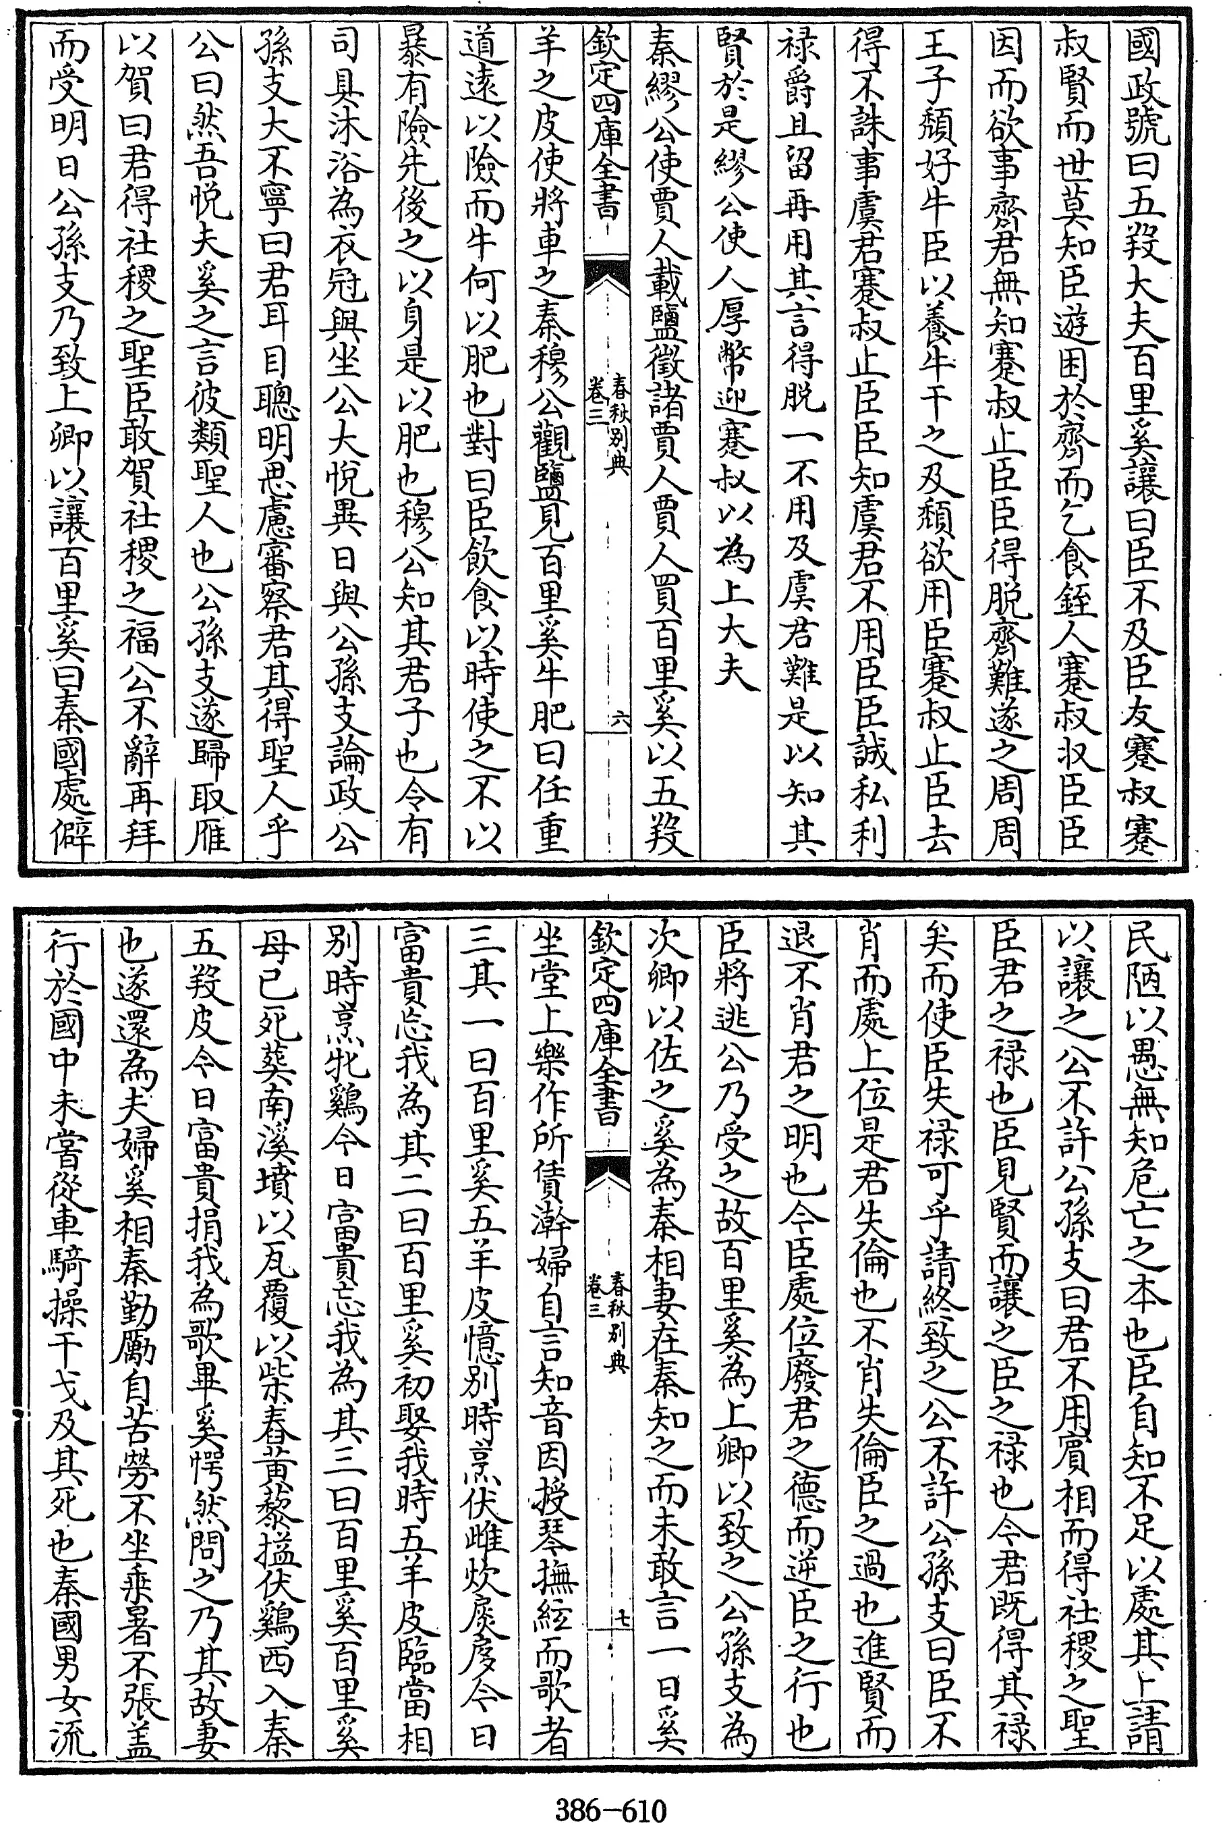 國政號曰五羖大夫百里奚讓曰臣不及臣友蹇叔蹇
叔賢而世莫知臣遊困於齊而乞食銍人蹇叔收臣臣
因而欲事齊君無知蹇叔止臣臣得脱齊難遂之周周
王子頹好牛臣以養牛干之及頹欲用臣蹇叔止臣去
得不誅事虞君蹇叔止臣臣知虞君不用臣臣誠私利
禄爵且留再用其言得脱一不用及虞君難是以知其
賢於是繆公使人厚幣迎蹇叔以為上大夫
秦繆公使賈人載鹽徵諸賈人賈人買百里奚以五羖
欽定四庫全書
春秋別典
卷三
六
羊之皮使將車之秦穆公觀鹽見百里奚牛肥曰任重
道遠以險而牛何以肥也對曰臣飲食以時使之不以
暴有險先後之以身是以肥也穆公知其君子也令有
司具沐浴為衣冠與坐公大悅異日與公孫支論政公
孫支大不寧曰君耳目聰明思慮審察君其得聖人乎
公曰然吾悅夫奚之言彼類聖人也公孫支遂歸取雁
以賀曰君得社稷之聖臣敢賀社稷之福公不辭再拜
而受明日公孫支乃致上卿以讓百里奚曰秦國處僻
民陋以愚無知危亡之本也臣自知不足以處其上請
以讓之公不許公孫支曰君不用賓相而得社稷之聖
臣君之禄也臣見賢而讓之臣之禄也今君既得其禄
矣而使臣失禄可乎請終致之公不許公孫支曰臣不
肖而處上位是君失倫也不肖失倫臣之過也進賢而
退不肖君之明也今臣處位廢君之德而逆臣之行也
臣將逃公乃受之故百里奚為上卿以致之公孫支為
次卿以佐之奚為秦相妻在秦知之而未敢言一日奚
欽定四庫全書
春秋別典
卷三
七
坐堂上樂作所賃澣婦自言知音因授琴撫絃而歌者
三其一曰百里奚五羊皮憶别時烹伏雌炊扊扅今日
富貴忘我為其二曰百里奚初娶我時五羊皮臨當相
别時烹牝鷄今日富貴忘我為其三曰百里奚百里奚
母已死葬南溪墳以瓦覆以柴舂黄藜搤伏鷄西入秦
五羖皮今日富貴捐我為歌畢奚愕然問之乃其故妻
也遂還為夫婦奚相秦勤勵自苦勞不坐乘暑不張盖
行於國中未嘗從車騎操干戈及其死也秦國男女流
386-610